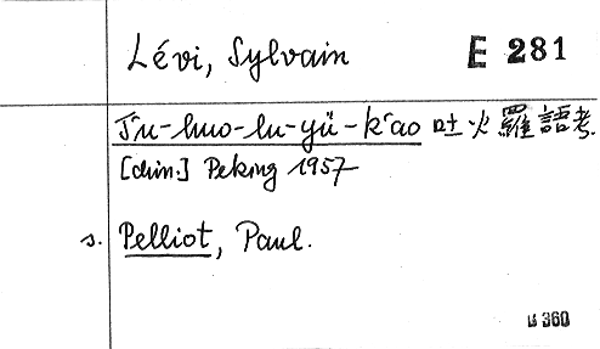 Lévi, Sylvain E 281
T'u-huo-lu-yü-k'ao 吐火羅語考.
[chin.] Peking 1957
s. Pelliot, Paul.
360